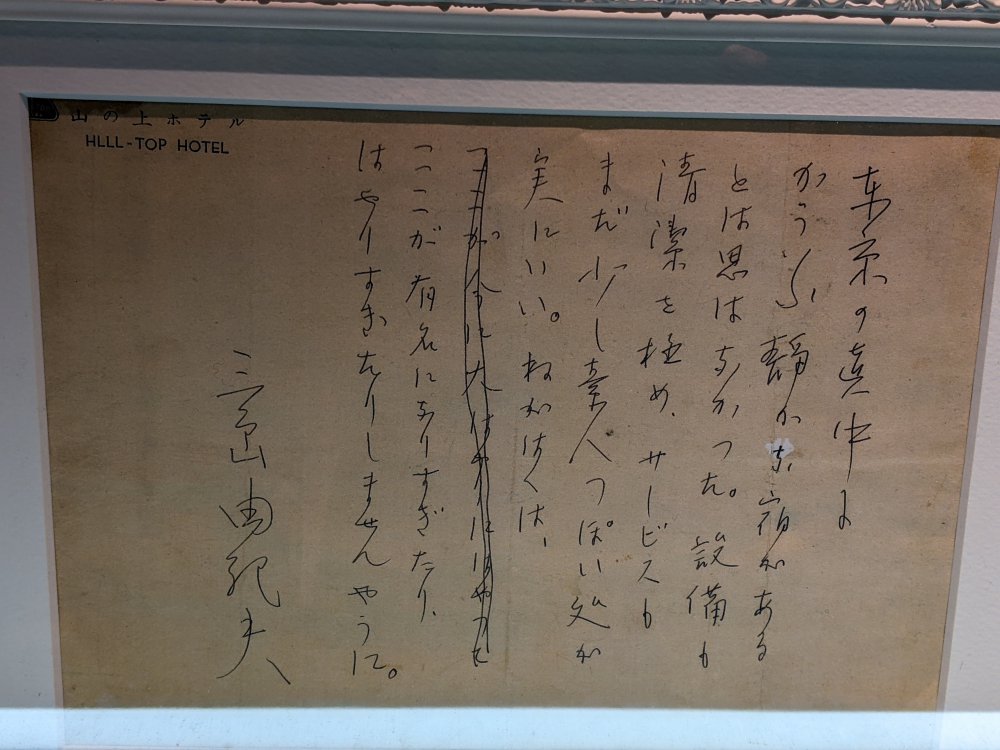 山の上ホテル
HLLL-TOP HOTEL
東京の真中に
かういふ静かな宿がある
とは思はなかつた。設備も
清潔を極め、サービスも
まだ少し素人つぽい処が
実にいい。ねがはくは、
ここが有名になりすぎたり、
はやりすぎたりしませんやうに。
三島由紀夫